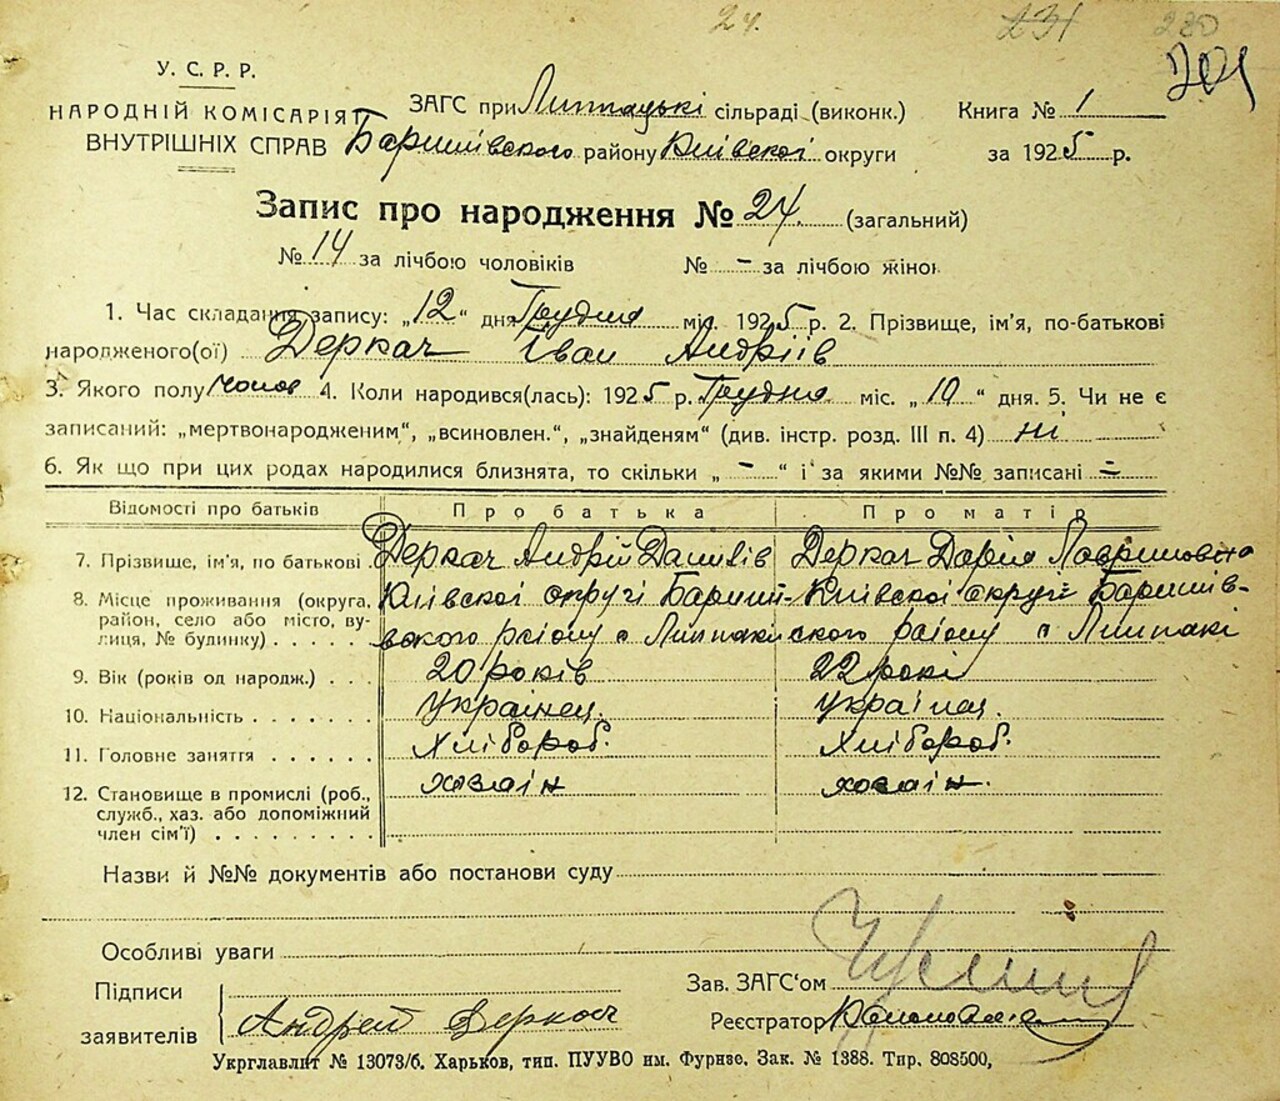 24. 231 280
201
У. С. Р. Р.
НАРОДНІЙ КОМІСАРІЯТ
ВНУТРІШНІХ СПРАВ
ЗАГС при сільраді (виконк.)
Баришівского району Київскоі округи
Книга № 1
за 1925 р.
Запис про народження № 24. (загальний)
№ 14 за лічбою чоловіків № - за лічбою жінок
1. Час складання запису: „12“ дня Грудня міс. 1925 р. 2. Прізвище, ім'я, по-батькові
народженого(ої) Деркач Іван Андріїв
3. Якого полу чолов 4. Коли народився(лась): 1925 р. Грудня міс. „10“ дня. 5. Чи не є
записаний: „мертвонародженим“, „всиновлен.“, „знайденям“ (див. інстр. розд. III п. 4) ні
6. Як що при цих родах народилися близнята, то скільки „-“ і за якими №№ записані -
Відомості про батьків Про батька Про матір
7. Прізвище, ім'я, по батькові Деркач Андрій Данилів Деркач Дарія
8. Місце проживання (округа, Київскоі округі Бариші- Київскоі округі Баришів-
район, село або місто, ву- вского раіону с Липнаки ского раіону с Липнакі
лиця, № будинку) . . . . .
9. Вік (років од народж.) . . . 20 років 22 рокі
10. Національність . . . . . . . Українец. Украінец.
11. Головне заняття . . . . . . Хлібороб. Хлібороб.
12. Становище в промислі (роб., хазаін хазаін.
служб., хаз. або допоміжний
член сім'ї) . . . . . . . . .
Назви й №№ документів або постанови суду
Особливі уваги
Підписи
заявителів Андрей Деркач
Зав. ЗАГС‘ом
Реєстратор
Укрглавліт № 13073/б. Харьков, тип. ПУУВО им. Фрунзе, Зак. № 1388. Тир. 808500,